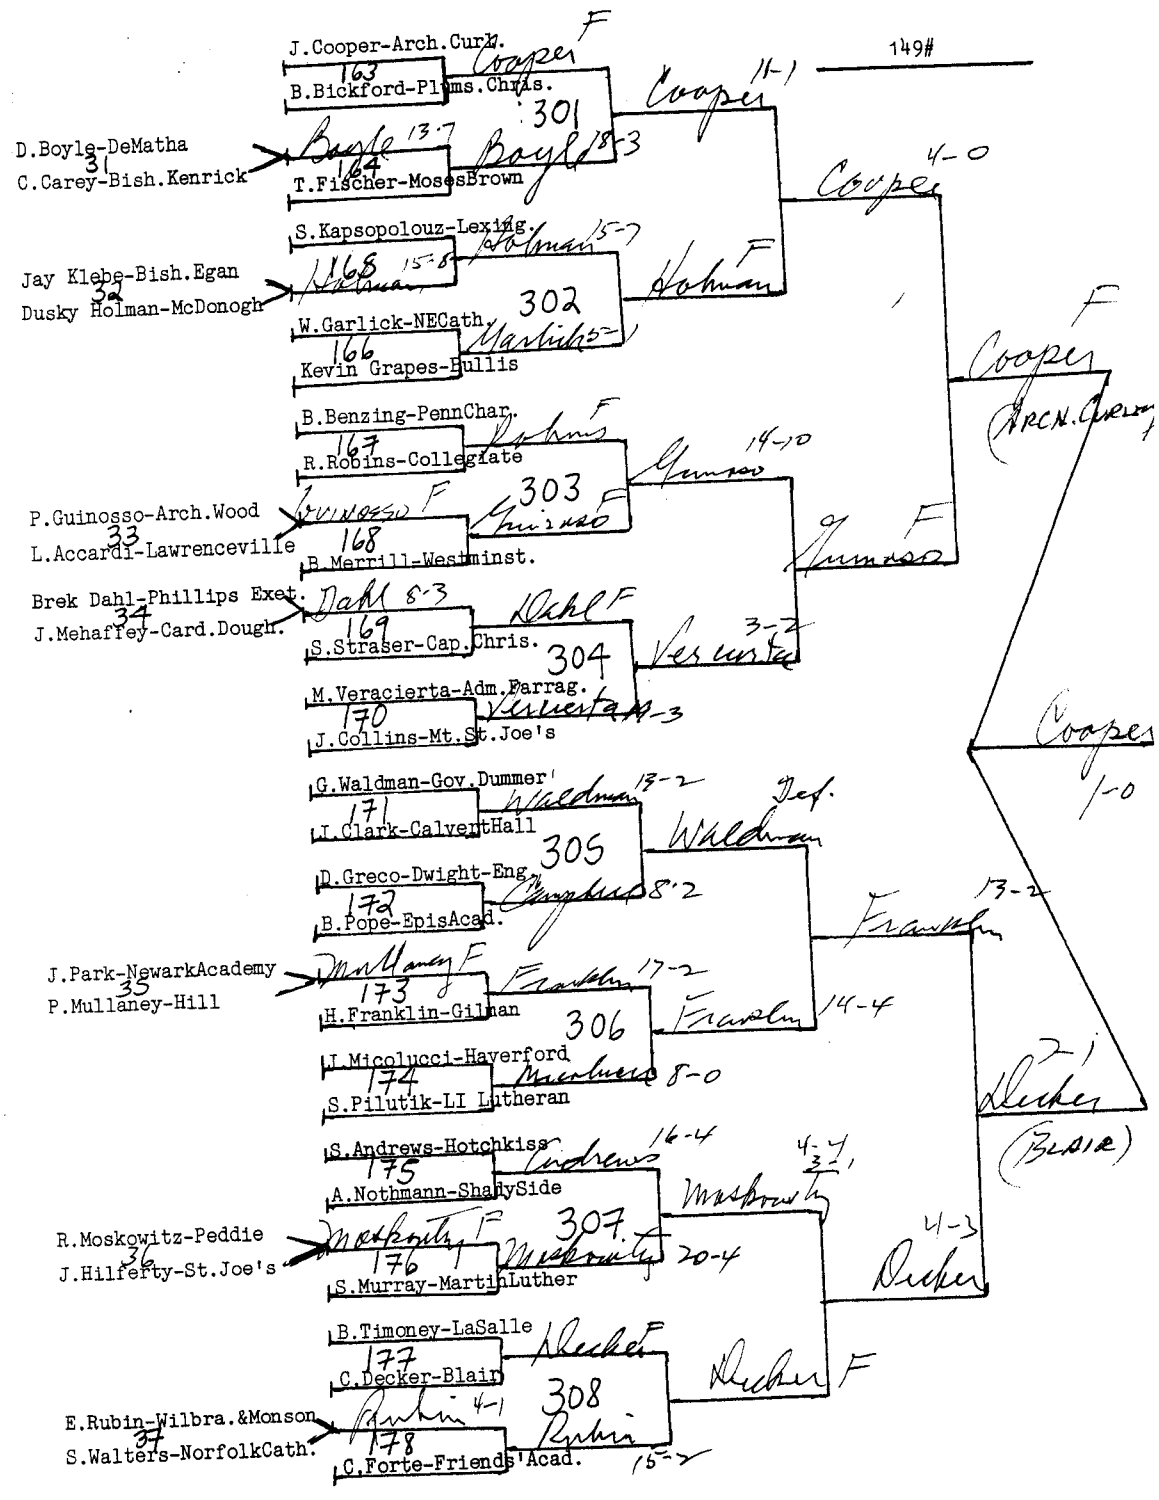 149#
J.Cooper-Arch.Curl.
Cooper F
163
B.Bickford-Plyms.Chris.
301
Cooper 11-1
D.Boyle-DeMatha
31
C.Carey-Bish.Kenrick
Boyle 13-7
164
T.Fischer-MosesBrown
Boyle 18-3
Cooper 4-0
S.Kapsopolouz-Lexing.
Holman 15-7
Jay Klebe-Bish.Egan
32
Dusky Holman-McDonogh
168
Holman 15-8
302
Holman F
W.Garlick-NECath.
166
Kevin Grapes-Bullis
Garlick 5-1
Cooper F
(ARCH. CURLEY
B.Benzing-PennChar.
167
R.Robins-Collegiate
Robins F
303
Guinosso 14-10
P.Guinosso-Arch.Wood
33
L.Accardi-Lawrenceville
Guinosso F
168
B.Merrill-Westminst.
Guinosso F
Guinosso F
Brek Dahl-Phillips Exet.
34
J.Mehaffey-Card.Dough.
Dahl 8-3
169
S.Straser-Cap.Chris.
Dahl F
304
Vercierta 3-2
M.Veracierta-Adm.Farrag.
170
J.Collins-Mt.St.Joe's
Vercierta 11-3
Cooper
1-0
G.Waldman-Gov.Dummer
171
I.Clark-CalvertHall
Waldman 13-2
305
Waldman Def.
D.Greco-Dwight-Eng.
172
B.Pope-EpisAcad.
Campbell 8-2
Franklin 13-2
J.Park-NewarkAcademy
35
P.Mullaney-Hill
Mullaney F
173
H.Franklin-Gilman
Franklin 17-2
306
Franklin 14-4
I.Micolucci-Haverford
174
S.Pilutik-LI Lutheran
Micolucci 8-0
Decker 2-1
(BLAIR)
S.Andrews-Hotchkiss
175
A.Nothmann-ShadySide
Andrews 16-4
307
Moskowitz 4-4
3-1
R.Moskowitz-Peddie
36
J.Hilferty-St.Joe's
Moskowitz F
176
S.Murray-MartinLuther
Moskowitz 20-4
Decker 4-3
B.Timoney-LaSalle
177
C.Decker-Blair
Decker F
308
Decker F
E.Rubin-Wilbra.&Monson
37
S.Walters-NorfolkCath.
Rubin 4-1
178
C.Forte-Friends'Acad.
Rubin
15-2